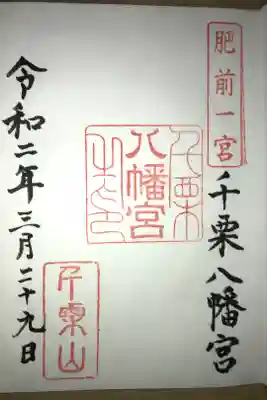 肥前一宮
千栗八幡宮
千栗八幡宮之印
令和二年三月二十九日
千栗山